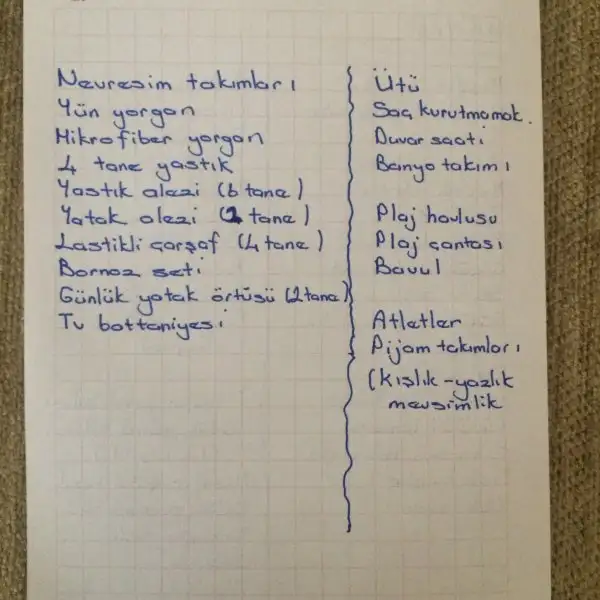 Nevresim takımları
Yün yorgan
Mikrofiber yorgan
4 tane yastık
Yastık alezi (6 tane)
Yatak alezi (2 tane)
Lastikli çarşaf (4 tane)
Bornoz seti
Günlük yatak örtüsü (2 tane)
Tv battaniyesi
Ütü
Saç kurutmamak.
Duvar saati
Banyo takımı
Plaj havlusu
Plaj çantası
Bavul
Atletler
Pijam takımları
(Kışlık-yazlık
mevsimlik